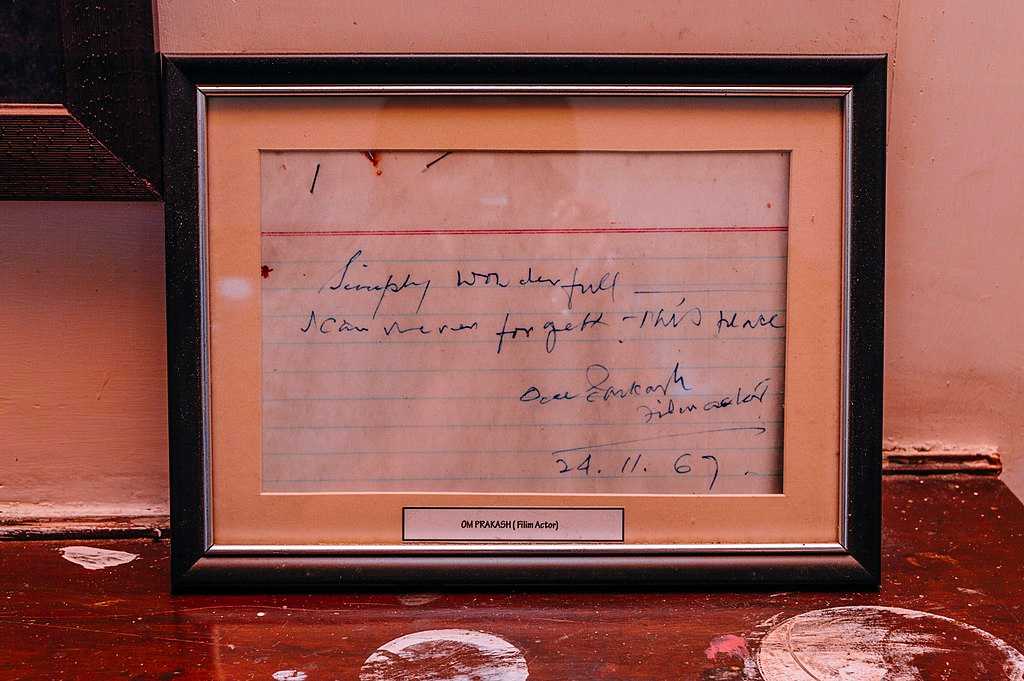 Simply wonderfull —
I can never forgett - this place
Om Parkash
Film actor
24. 11. 67.
OM PRAKASH ( Filim Actor)